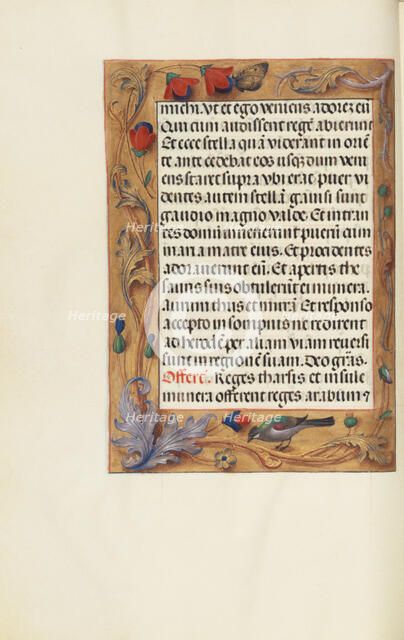 michi. vt et ego veniens adorez eū
Qui cum audissent regē abierunt
Et ecce stella quā viderant in oriē
te antecedebat eos usq3 dum veni
ens staret supra vbi erat puer vi
dentes autem stellā gauisi sunt
gaudio magno valde. Et intran
tes domū invenerunt puerū cum
maria matre eius. Et procidentes
adoraverunt eū. Et apertis the
sauris suis obtulerunt ei munera.
aurum thus et mirrā Et responso
accepto in sompnis ne redirent
ad herodē per aliam viam reversi
sunt in regionē suam. Deo grās.
Offerē. Reges tharsis et insule
munera offerent reges arabum ⁊
Heritage
Heritage
Heritage
Heritage
Heritage
Heritage